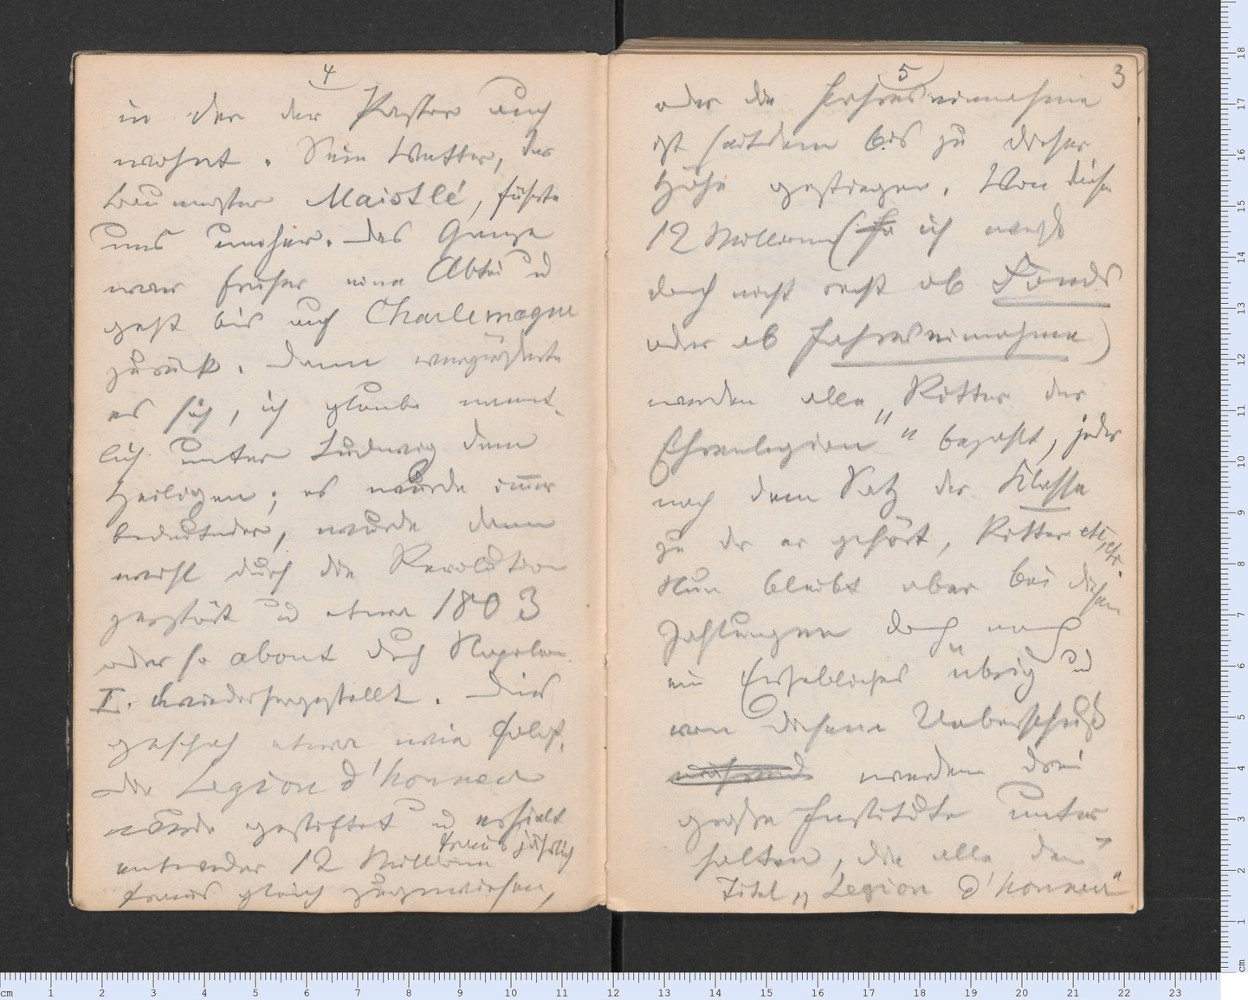 4
in der der Pastor auch
wohnt. Sein Vetter, der
Baumeister Maistlé, führte
uns umher. Das Ganze
war früher eine Abtei u
geht bis auf Charlemagne
zurück. Dann vergrößerte
es sich, ich glaube nament-
lich unter Ludwig dem
Heiligen; es wurde immer
bedeutender, wurde dann
wohl durch die Revolution
zerstört u etwa 1803
oder so about durch Napoleon
I. wiederhergestellt. Dies
geschah etwa wie folgt.
Die Legion d'honneur
wurde gestiftet u erhielt
entweder 12 Millionen francs jährlich
francs gleich zugewiesen,
5
3
oder die Jahreseinnahme
ist seitdem bis zu dieser
Höhe gestiegen. Von diesen
12 Millionen (ich weiß
doch nicht recht ob Fonds
oder ob Jahreseinnahme)
werden alle „Ritter der
Ehrenlegion" bezahlt, jeder
nach dem Satz der Klasse
zu der er gehört, Ritter etc, etc.
Nun bleibt aber bei diesen
Zahlungen doch noch
ein Erhebliches übrig u
von diesem Ueberschuß
während werden drei
große Institute unter
halten, die alle den
Titel „Legion d'honneur"